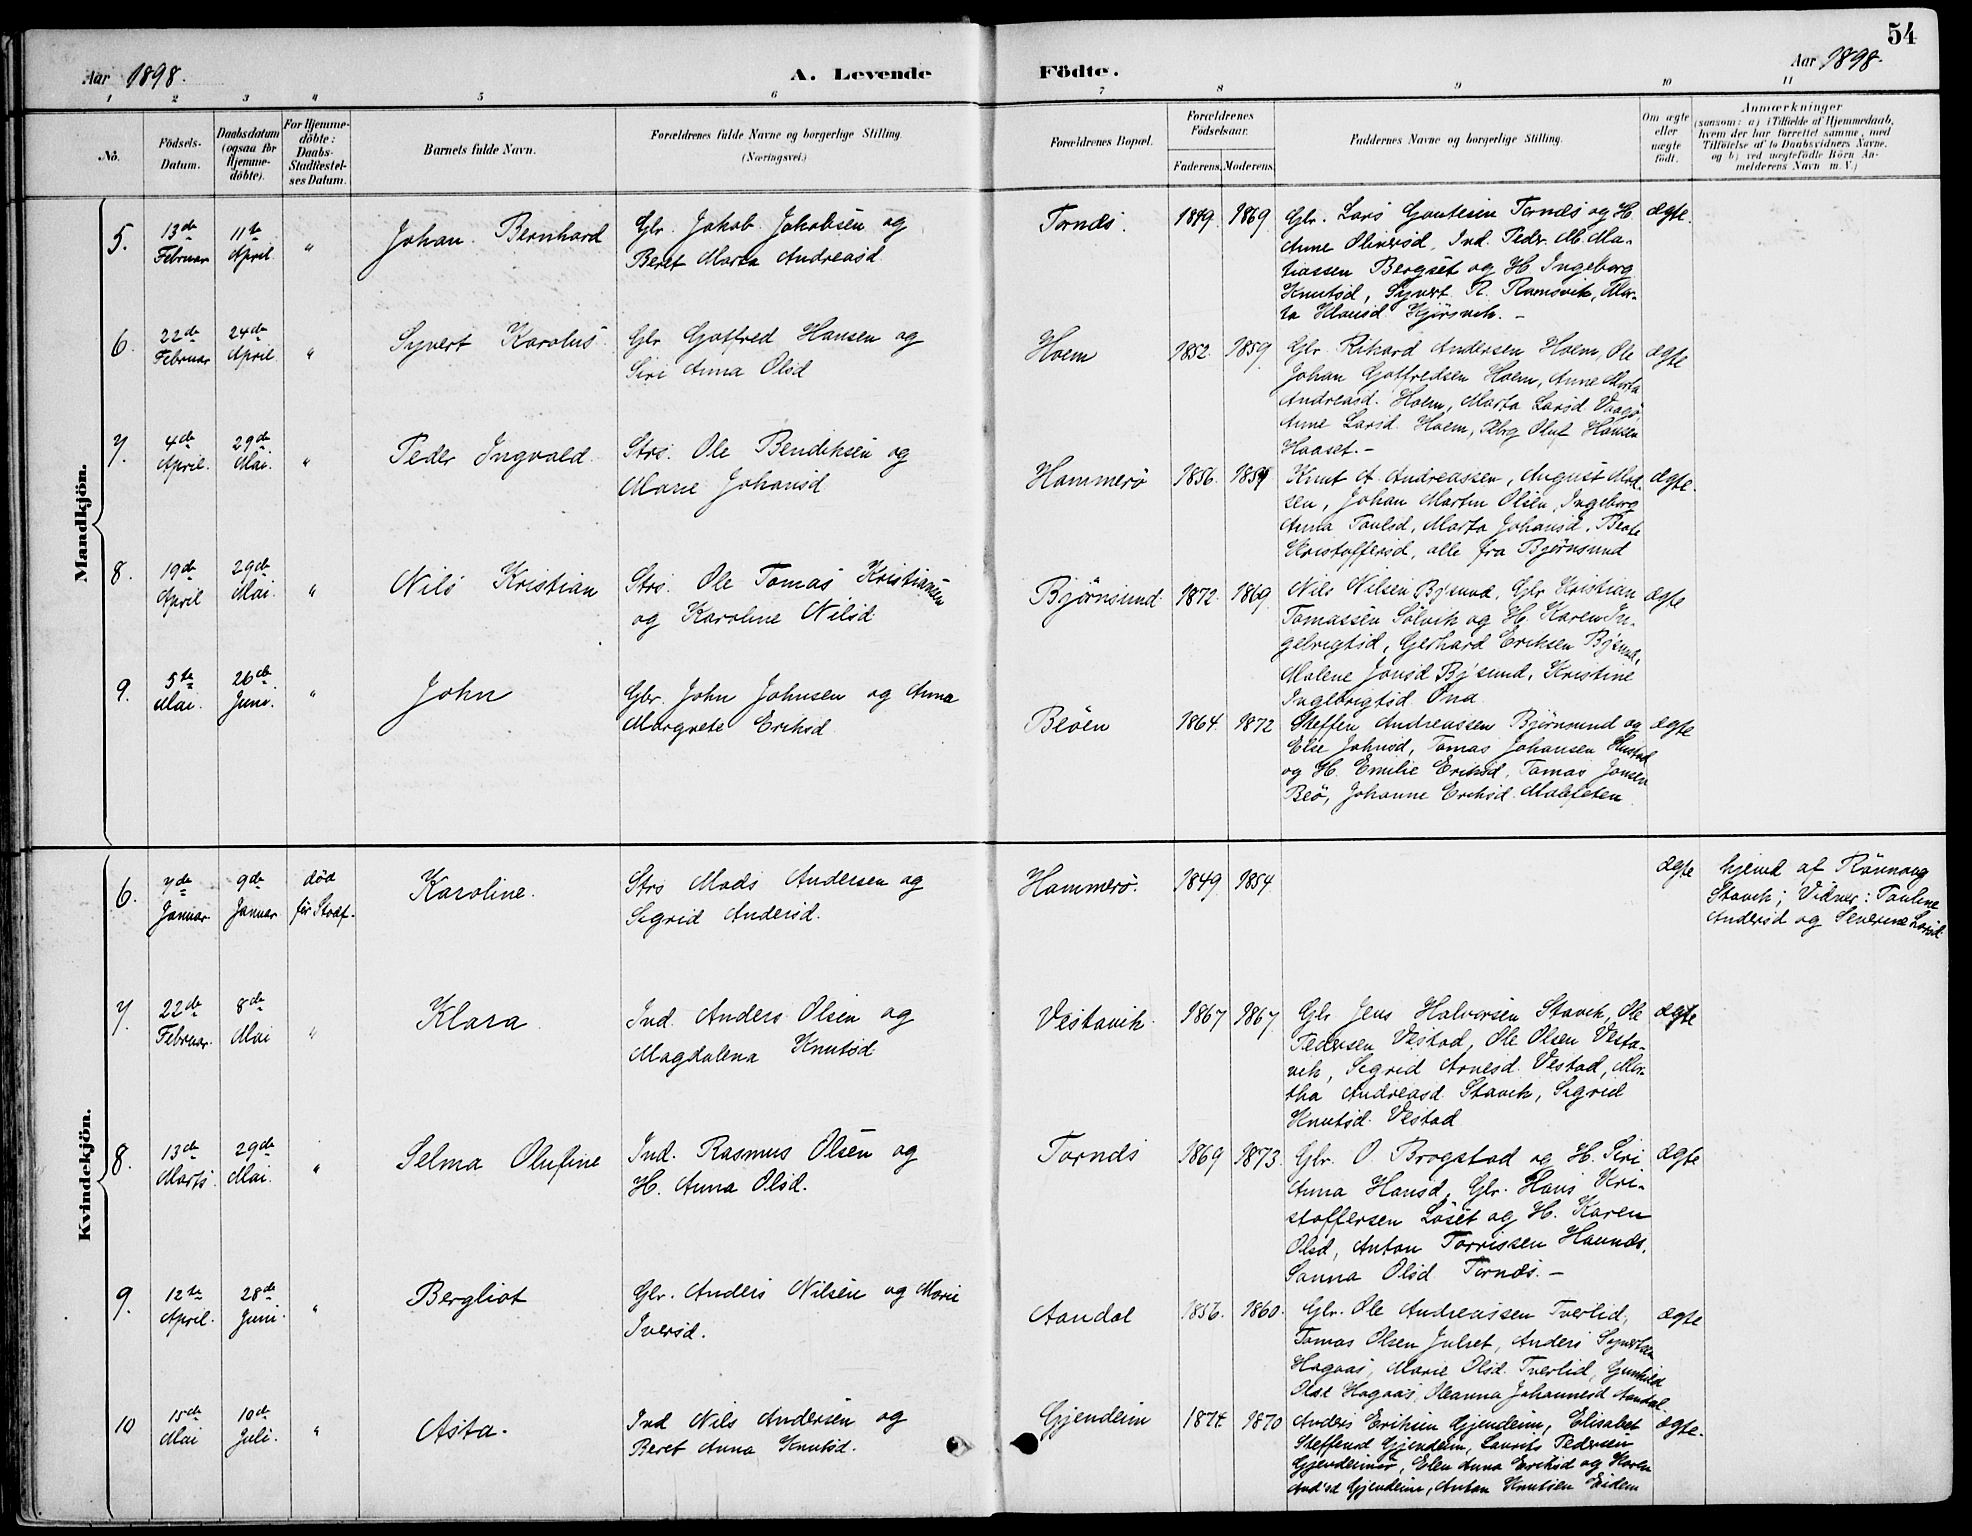 54
Aar 1898. A. Levende Födte. Aar 1898.
1 2 3 4 5 6 7 8 9 10 11
No. Födsels-Datum. Daabsdatum (ogsaa for Hjemme-döbte). For Hjemme-döbte: Daabs-Stadfæstel-ses Datum. Barnets fulde Navn. Forældrenes fulde Navne og borgerlige Stilling. (Næringsvei.) Forældrenes Bopæl. Forældrenes Födselsaar. Faderens. Moderens. Faddernes Navne og borgerlige Stilling. Om ægte eller uægte födt. Anmærkninger (saasom: a) i Tilfælde af Hjemmedaab, hvem der har forrettet samme, med Tilföielse af to Daabsvidners Navne, og b) ved uægtefödte Börn An-melderens Navn m.V.)
Mandkjön.
5. 13de Februar 11te April " Johan Bernhard Gbr. Jakob Jakobsen og
Beret Marta Andreasd.
Tornæs. 1849. 1869. Gbr. Lars Gautesen Tornæs og H. ægte.
Anne Olinesd, Ind. Peder M. Ma-
tiassen Bergset og H. Ingeborg
Knutsd, Syvert R. Ramsvik, Mar-
ta Klausd Hjörsvik. -
6. 22de Februar 24de April " Syvert Karolus. Gbr Gotfred Hansen og
Siri Anna Olsd
Hoem 1852. 1859. Gbr Rikard Andersen Hoem, Ole ægte
Johan Gotfredsen Hoem, Anne Marta
Andreasd. Hoem, Marta Larsd Vaagö,
Anne Larsd. Hoem, Olaf Hansen
Haaset. -
7. 4de April. 29de Mai. " Peder Ingvald. Strs. Ole Bendiksen og
Marie Johansd
Hammerö 1856. 1854 Knut A. Andreassen, August Mad- ægte.
sen, Johan Martin Olsen, Ingeborg
Anna Paulsd, Marta Johansd, Beate
Kristoffersd, alle fra Bjørnsund
8. 19de April 29de Mai. " Nils Kristian Strs. Ole Tomas Kristiansen
og Karoline Nilsd
Bjørnsund 1872. 1869. Nils Nilsen Bj'sund, Gbr Kristian ægte
Tomassen Sölvik og H. Karen In-
gebrigtsd, Gerhard Eriksen Bj'sund,
Malene Jonsd Bj'sund, Kristine
Ingebrigtsd Ona.
9. 5te Mai. 26de Juni. " John Gbr. John Johnsen og Anna
Margrete Eriksd
Beöen 1864. 1872 Steffen Andreassen Bjørnsund og ægte
Else Johnsd, Tomas Johansen Hustad
og H. Emilie Eriksd, Tomas Jonsen
Beö, Johanne Eriksd. Malefeten.
Kvindekjön.
6. 7de Januar 9de Januar død før Stadf. Karoline. Strs Mads Andersen og
Sigrid Andersd.
Hammerö. 1849. 1854 ægte hjemd af Rönnaug
Stavik; Vidner: Pauline
Andersd og Severine Larsd.
7. 22de Februar. 8de Mai " Klara Ind. Anders Olsen og
Magdalena Knutsd
Vestavik. 1867 1867 Gbr Jens Halvorsen Stavik, Ole ægte
Pedersen Vestad, Ole Olsen Vesta-
vik, Sigrid Arnesd. Vestad, Mar-
tha Andreasd. Stavik, Sigrid
Knutsd. Vestad
8. 13de Marts. 29de Mai. " Selma Olufine Ind. Rasmus Olsen og
H. Anna Olsd.
Tornæs 1869 1873. Gbr. O. Brogstad og H. Siri ægte
Anna Hansd, Gbr. Hans Kri-
stoffersen Löset og H. Karen
Olsd, Anton Torrissen Haunæs,
Sanna Olsd Tornæs. -
9. 12te April. 28de Juni. " Bergliot Gbr. Anders Nilsen og Marie
Iversd.
Aandal 1856. 1860. Gbr. Ole Andreassen Tverlid, ægte
Tomas Olsen Julset, Anders Syvertsen
Hagaas, Marie Olsd. Tverlid, Gunhild
Olsd Hagaas, Oleanna Johannesd Aandal.
10 15de Mai 10de Juli. " Asta. Ind Nils Andersen og
Beret Anna Knutsd.
Gjendeim 1874. 1870 Anders Eriksen Gjendeim, Elisabet ægte.
Steffensd Gjendeim, Laurits Pedersen
Gjendeimsör, Elen Anna Eriksd og Karen
And'sd Gjendeim, Anton Knutsen Eidem